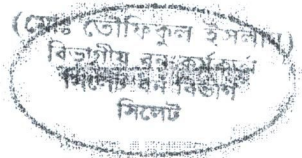 (মোঃ তৌফিকুল ইসলাম)
বিভাগীয় বন কর্মকর্তা
সিলেট বন বিভাগ
সিলেট